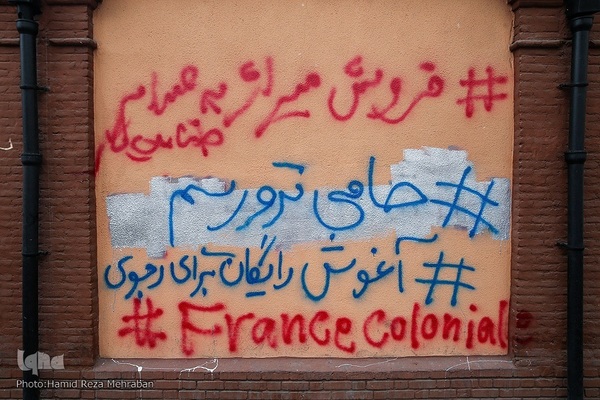 #فروش میراژ به صدام
#حامی تروریسم
#آغوش رایگان برای رجوی
#France colonial
iqna
Photo:Hamid Reza Mehraban